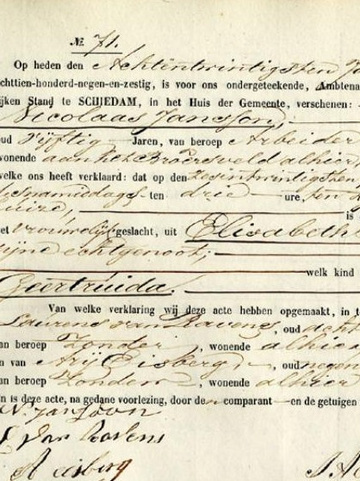 № 71.
Op heden den Achtentwintigsten J
chttien-honderd-negen-en-zestig, is voor ons ondergeteekende, Ambtena
lijken Stand te SCHIEDAM, in het Huis der Gemeente, verschenen:
Nicolaas Jansson,
oud Vijftig Jaren, van beroep Arbeider
wonende aan het Broersveld alhier
welke ons heeft verklaard: dat op den zesentwintigsten
des namiddags ten drie ure, ten
huize, is
het vrouwelijk geslacht, uit Elisabeth
zijne echtgenoot;
welk kind
Geertruida.
Van welke verklaring wij deze acte hebben opgemaakt, in t
Laurens van Ravens, oud acht
van beroep Zonder, wonende alhier
en van Arij Eisberg, oud negen
van beroep Zonder, wonende alhier
en is deze acte, na gedane voorlezing, door de comparant en de getuigen
N. Jansson
L van Ravens
A Eisberg